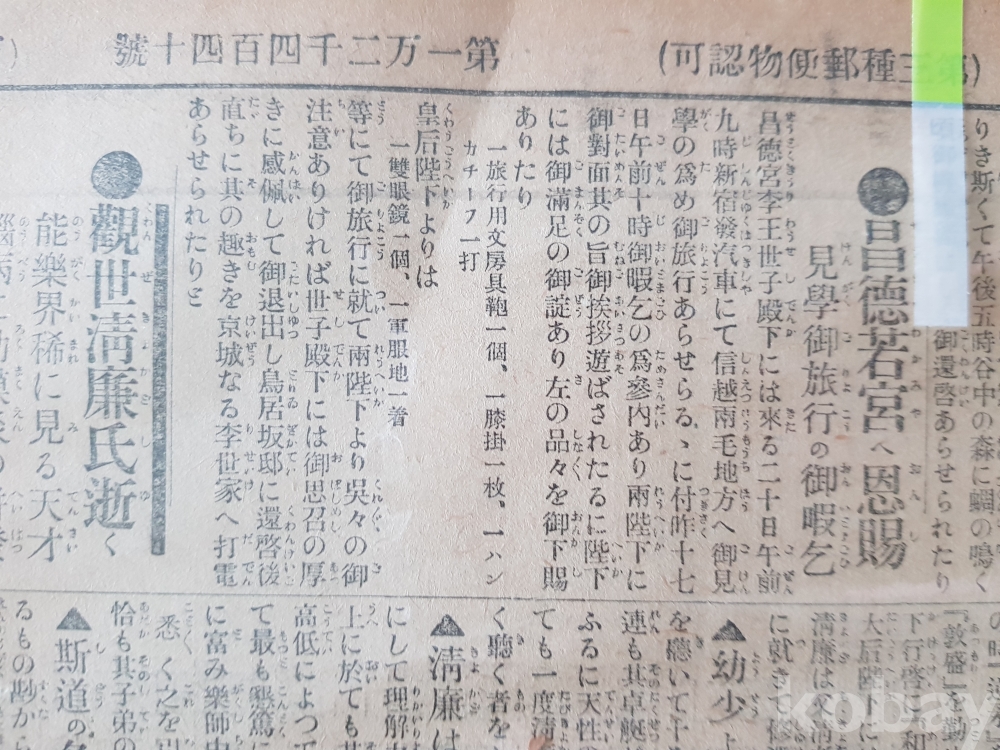 第三種郵便物認可)
第一万二千四百四十號
りき斯くて午後五時谷中の森に蜩の鳴く
御還啓あらせられたり
●昌德若宮へ恩賜
見學御旅行の御暇乞
昌德宮李王世子殿下には來る二十日午前
九時新宿發汽車にて信越兩毛地方へ御見
學の爲め御旅行あらせらるゝに付昨十七
日午前十時御暇乞の爲參內あり兩陛下に
御對面其の旨御挨拶遊ばされたるに陛下
には御滿足の御諚あり左の品々を御下賜
ありたり
一旅行用文房具鞄一個、一膝掛一枚、一ハン
カチーフ一打
皇后陛下よりは
一雙眼鏡一個、一軍服地一着
等にて御旅行に就て兩陛下より吳々の御
注意ありければ世子殿下には御思召の厚
きに感佩して御退出し鳥居坂邸に還啓後
直ちに其の趣きを京城なる李世家へ打電
あらせられたりと
●觀世淸廉氏逝く
能樂界稀に見る天才
『敦盛』を勤
下行啓
大后陛下
淸廉は
に就き
▲幼少
を聽いて
連も其
ふるに天性の
ても一度淸
く聽く者を
▲淸廉は
にして理解
上に於ても
高低によつて
て最も懇篤に
に富み樂師中
悉く之を
恰も其子弟の
▲斯道の
るもの尠から
kobay